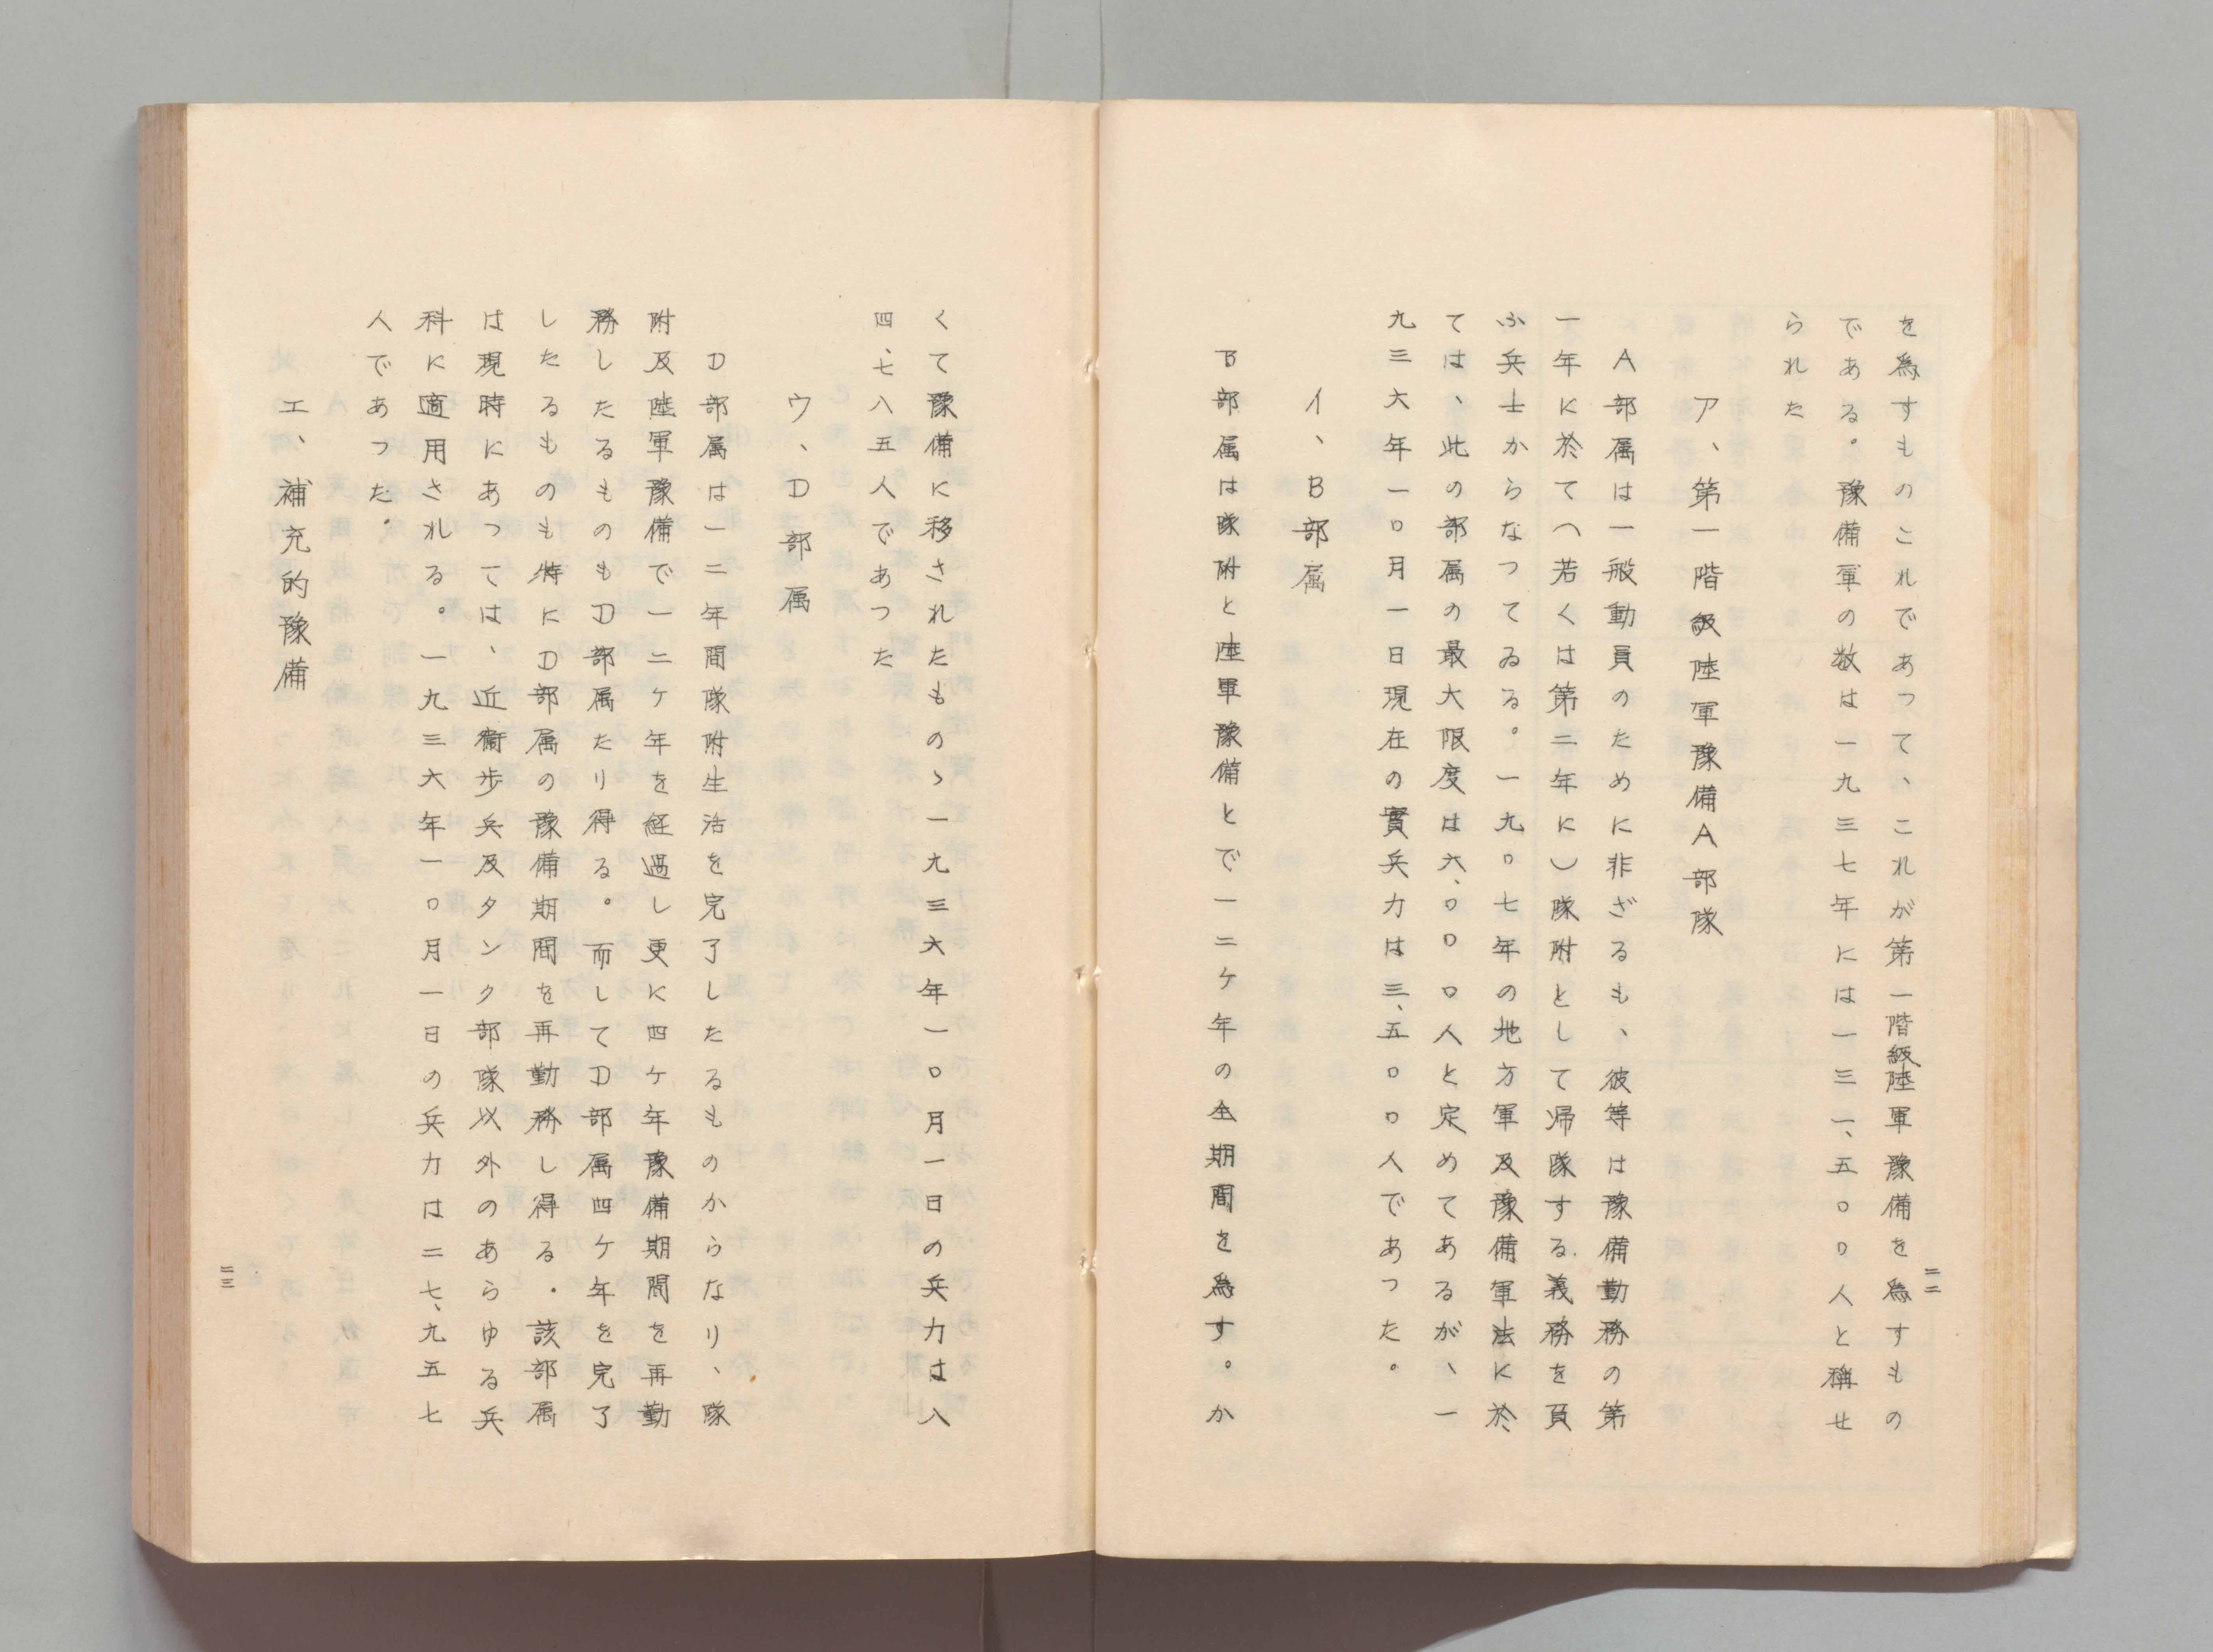 を為すものこれであつて、これが第一階級陸軍豫備を為すもの
である。豫備軍の数は一九三七年には一三一、五〇〇人と稱せ
られた
ア、第一階級陸軍豫備A部隊
A部属は一般動員のために非ざるも、彼等は豫備勤務の第
一年に於て(若くは第二年に)隊附として帰隊する義務を負
ふ兵士からなつてゐる。一九〇七年の地方軍及豫備軍法に於
ては、此の部属の最大限度は六、〇〇〇人と定めてあるが、一
九三六年一〇月一日現在の實兵力は三、五〇〇人であつた。
イ、B部属
B部属は隊附と陸軍豫備とで一二ケ年の全期間を為す。か
二二
くて豫備に移されたものゝ一九三六年一〇月一日の兵力は八
四、七八五人であつた
ウ、D部属
D部属は一二年間隊附生活を完了したるものからなり、隊
附及陸軍豫備で一二ケ年を経過し更に四ケ年豫備期間を再勤
務したるものもD部属たり得る。而してD部属四ケ年を完了
したるものも特にD部属の豫備期間を再勤務し得る・該部属
は現時にあつては、近衛歩兵及タンク部隊以外のあらゆる兵
科に適用される。一九三六年一〇月一日の兵力は二七、九五七
人であつた。
エ、補充的豫備
二三